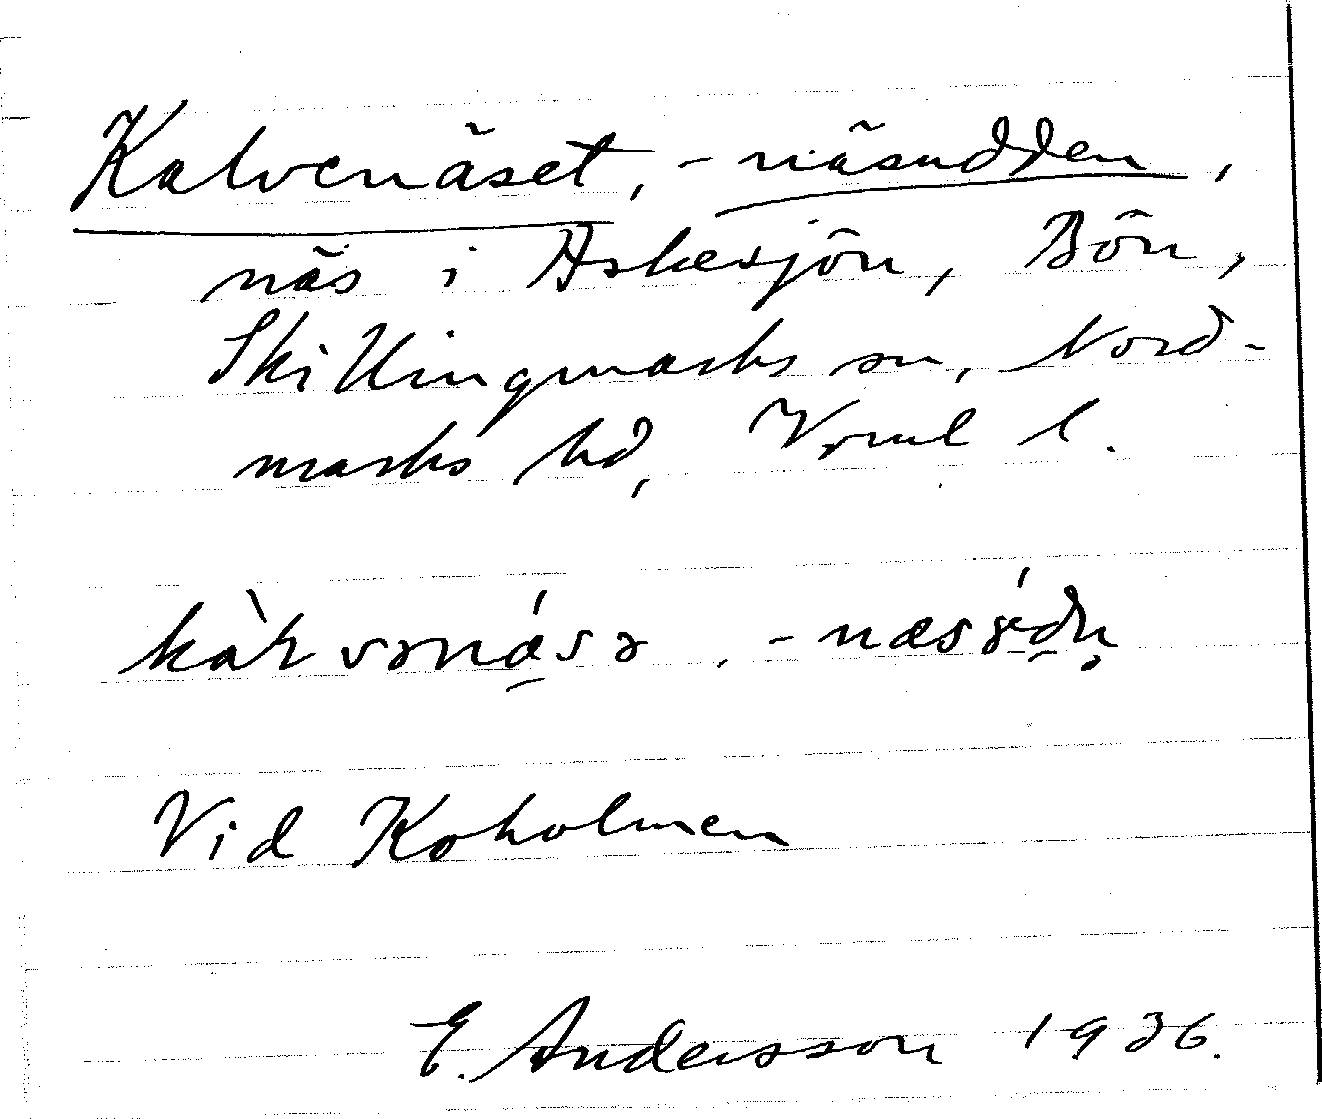 Kalvenäset, -näsudden,
näs i Askesjön, Bön,
Skillingmarks sn, Nord-
marks hd, Vrml l.
-næs
Vid Koholmen
E. Andersson 1936.